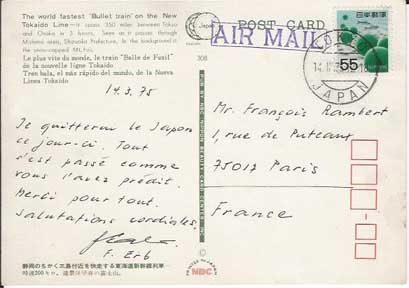 The world fastest "Bullet train" on the New
Tokaido Line—it spans 350 miles between Tokyo
and Osaka in 3 hours. Seen as it passes through
Mishima area, Shizuoka Prefecture. In the background is
the snow-capped Mt. Fuji.
Le plus vite du monde, le train "Balle de Fusil"
de la nouvelle ligne Tokaido
Tren bala, el más rápido del mundo, de la Nueva
Línea Tokaido
308
POST CARD
AIR MAIL
日本郵便
55
JAPAN
14.3.75
Je quitterai le Japon
ce jour-ci. Tout
s'est passé comme
vous l'avez prédit.
Merci pour tout.
Salutations cordiales.
F. Erb
Mr. François Rambert
1, rue de Puteaux
75017 Paris
France
静岡のちかく三島付近を快走する東海道新幹線列車
時速200キロ。遠景は早春の富士山。
PRINTED IN JAPAN
NBC